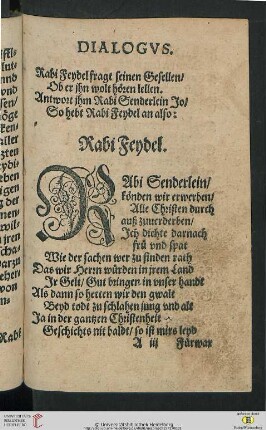 DIALOGVS.
Rabi Feydel fragt seinen Gesellen/
Ob er jhn wolt hören lellen.
Antwort jhm Rabi Senderlein Jo/
So hebt Rabi Feydel an also:
Rabi Feydel.
RAbi Senderlein/
könden wir erwerben/
Alle Christen durch
auß zuuerderben/
Jch dichte darnach
frü vnd spat
Wie der sachen wer zu finden rath
Das wir Herrn würden in jrem Land
Jr Gelt/ Gut bringen in vnser handt
Als dann so hetten wir den gwalt
Beyd todt zu schlahen jung vnd alt
Ja in der gantzen Christenheit
Geschichts nit baldt/ so ist mirs leyd
A iij Fürwar